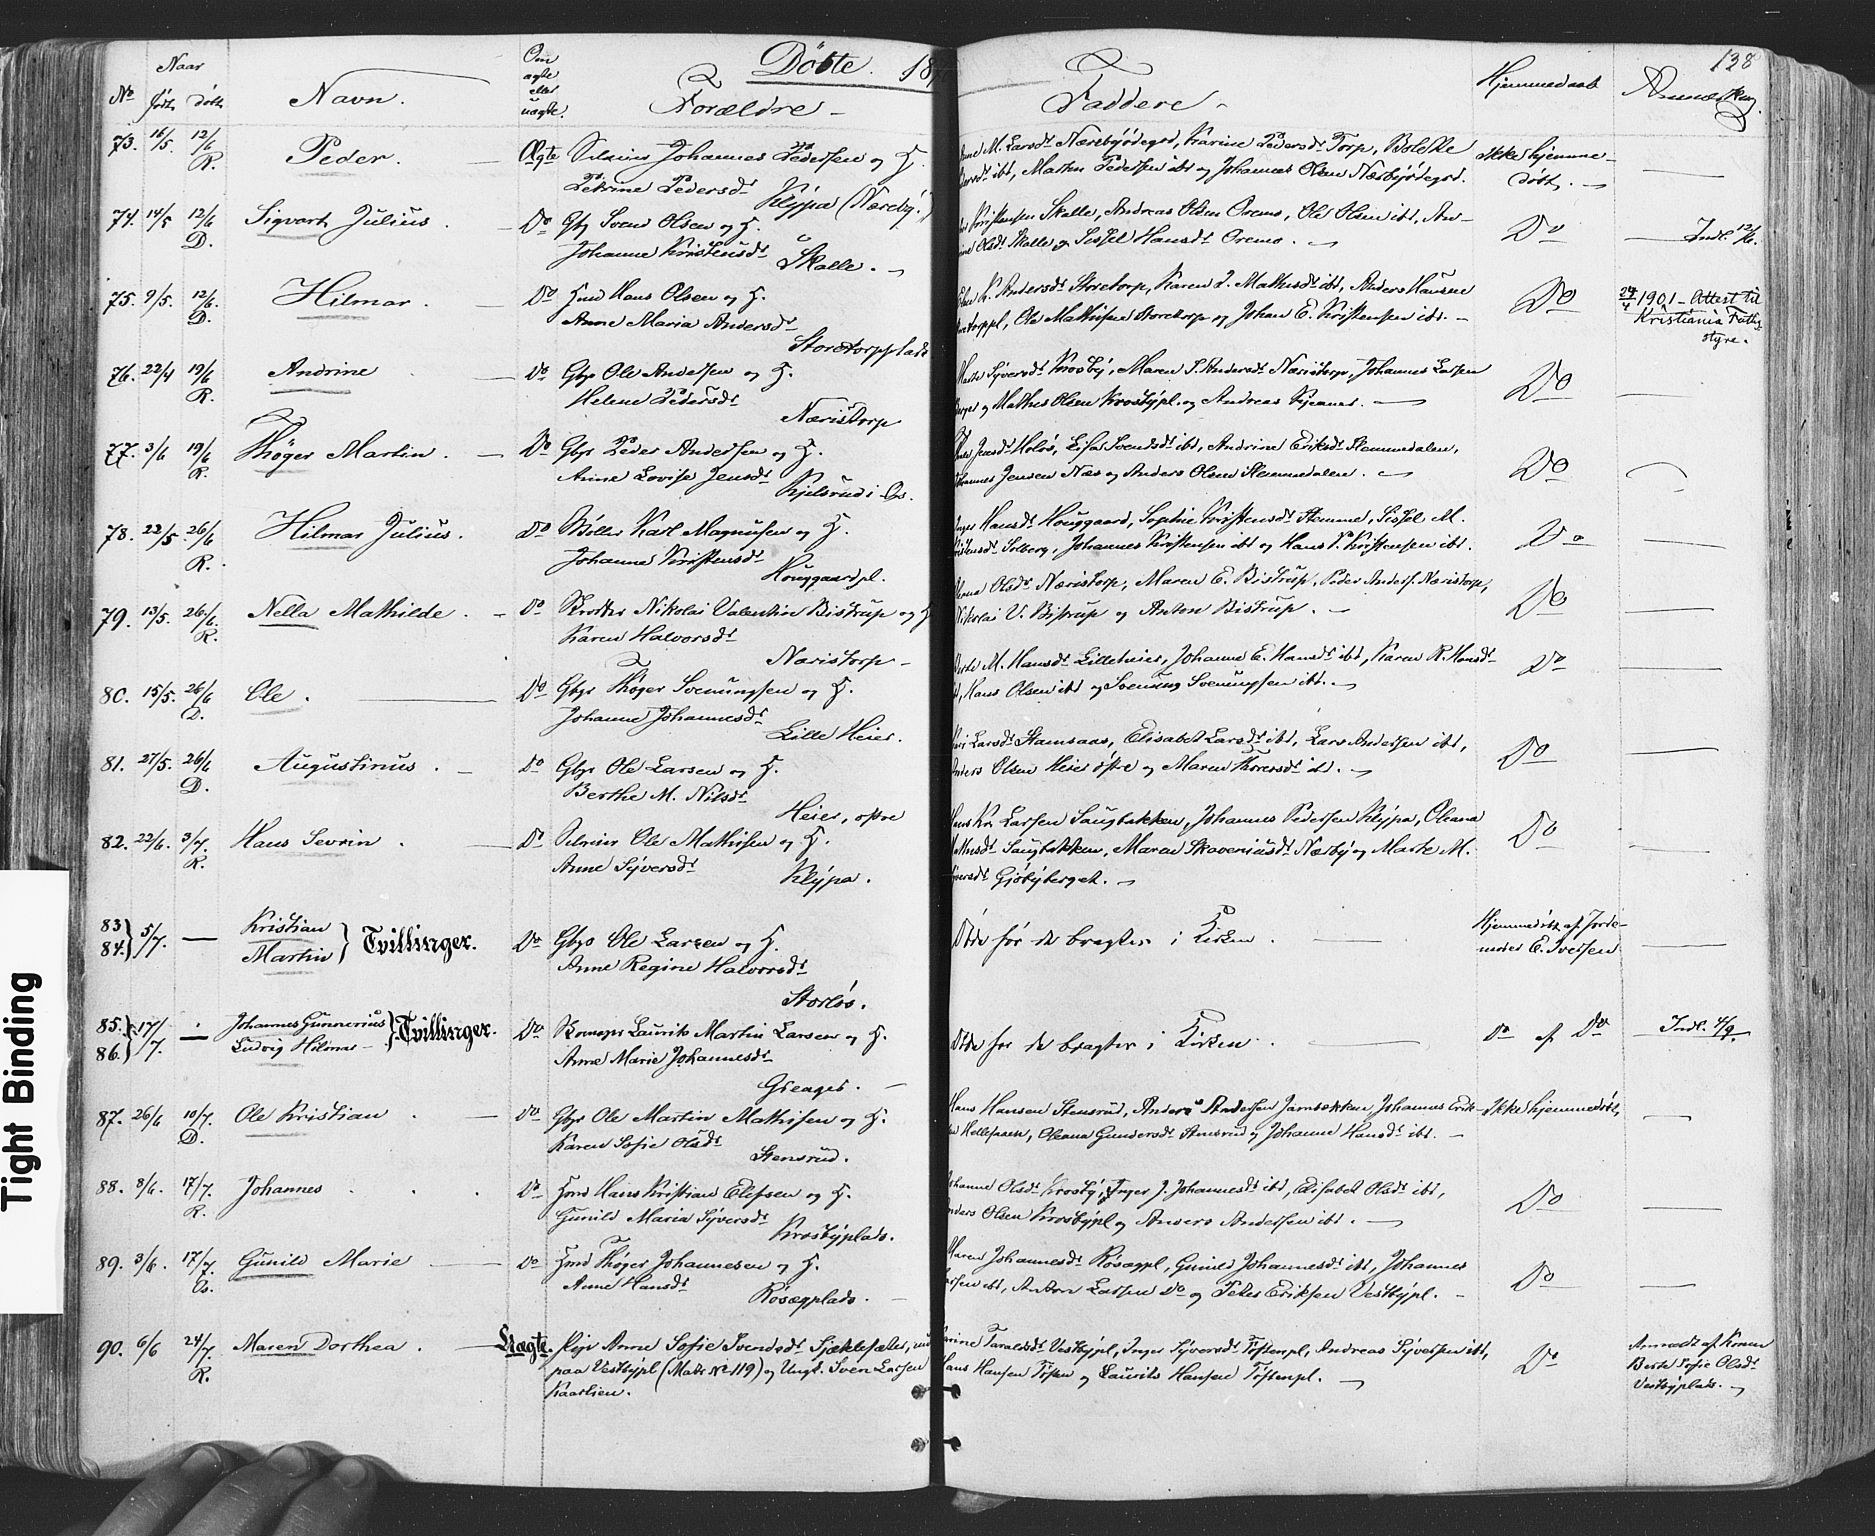 Døbte. 18
138
No
Naar
født døbt
Navn.
Om
ægte
eller
uægte.
Forældre
Faddere
Hjemmedøbt
Anmærkng.
73. 16/5. 12/6 R. Peder. Ægte Johannes Pedersen og H.
Petrine Pedersdr Klypa (Næsby.)
M. Larsdr Næsbyødegrd, Karine Pedersdr Torp, Bolette
ibt, Mathis Pedersen ibt og Johannes Olsen Næsbyødegrd.
Ikke hjemme-
døbt.
74. 14/5 12/6 D. Sigvart Julius. Do Gbr Svend Olsen og H.
Johanne Kristensdr Skolle.
Kristensen Skolle, Andreas Olsen Oremo, Ole Olsen ibt, An-
Olsdr Skolle og Sissel Hansdr Oremo.
Do
Indl. 12/6.
75. 9/5. 12/6. D. Hilmar. Do Hmd Hans Olsen og H.
Anne Maria Andersdr
Storetorpplads
K. Andersdr Storetorp, Karen J. Mathisdr ibt, Anders Hansen
Ole Mathisen Storetorp og Johan E. Kristensen ibt.
Do
24/4 1901 - Attest til
Kristiania Fattig-
styre.
76. 22/4 19/6 R. Andrine Do Gbr Ole Andersen og H.
Helene Pedersdr
Næristorp
Syversdr Krosby, Maren S. Andersdr Næristorp, Johannes Larsen
og Mathis Olsen Krosbypl. og Andreas
Do
77. 3/6 19/6 R. Thøger Martin. Do Gbr Peder Andersen og H.
Anne Lovise Jensdr Kjelsrud i Os.
Jensdr Holøs, Lisa Svendsdr ibt, Andrine Eriksdr Stemmedalen,
Johannes Jensen Næs og Anders Olsen Stemmedalen.
Do
78. 22/5. 26/6 R. Hilmar Julius. Do Møller Karl Magnusen og H.
Johanne Kristensdr
Houggaardpl.
Inger Hansdr Houggaard, Sophie Kristensdr Stemme, Sissel M.
Kristensdr Solberg, Johannes Kristensen ibt og Hans P. Kristensen ibt.
Do
79. 13/5. 26/6. R. Nella Mathilde. Do Nikolai Valentin Bistrup og H
Karen Halvorsdr
Næristorp
Olsdr Næristorp, Maren E. Bistrup, Peder Anders. Næristorp,
Nikolai V. Bistrup og Anton Bistrup.
Do
80. 15/5. 26/6 D. Ole. Do Gbr Thøger Svenungsen og H.
Johanne Johannesdr
Lille Heier.
M. Hansdr Lilleheier, Johanne E. Hansdr ibt, Karen R. Hansdr
Hans Olsen ibt og Svenung Svenungsen ibt.
Do
81. 27/5. 26/6 D. Augustinus. Do Gbr Ole Larsen og H.
Berthe M. Nilsdr
Heier, østre
Larsdr Stamsaas, Elisabet Larsdr ibt, Lars Andersen ibt,
Anders Olsen Heier østre og Maren Thoresdr ibt.
Do
82. 22/6. 3/7. R. Hans Sevrin. Do Ole Mathisen og H.
Anne Syversdr
Klypa.
Hans Kr. Larsen Saugbakken, Johannes Pedersen Klypa, Oleana
Mathisdr Saugbakken, Maren Skoveniusdr Næsby og Marte M.
Syversdr Gjøbyberget.
Do
83
84. } 5/7. — Kristian
Martin } Tvillinger. Do Gbr Ole Larsen og H.
Anne Regine Halvorsdr
Storløs.
Døde før de bragtes i Kirken.
Hjemmedøbt af Jorde-
moder E. Iversen
85.
86. } 17/7. — Johannes Gunnerius
Ludvig Hilmar } Tvillinger. Do Laurits Martin Larsen og H.
Anne Marie Johannesdr
Greager.
Døde før de bragtes i Kirken.
Do af Do
Indl. 4/9.
87. 26/6 10/7. D. Ole Kristian. Do Gbr Ole Martin Mathisen og H.
Karen Sofie Olsdr
Stensrud.
Hans Hansen Stensrud, Anders Andersen Jarnsækken, Johannes Erik-
Hellesaaen, Oleana Gundersdr Stensrud og Johanne Hansdr ibt.
Ikke hjemmedøbt,
88. 8/6. 17/7. R. Johannes. Do Hmd Hans Kristian Elefsen og H.
Gunild Maria Syversdr
Krosbyplads.
Johanne Olsdr Krosby, Inger J. Johannesdr ibt, Elisabet Olsdr ibt,
Anders Olsen Krosbypl og Anders Andersen ibt.
Do
89. 3/6. 17/7. Os. Gunild Marie Do Hmd Thøger Johannesen og H.
Anne Hansdr
Røsægplads.
Maren Johannesdr Røsægpl, Gunild Johannesdr ibt, Johannes
ibt, Anton Larsen Do og Peter Eriksen Vestbypl.
Do
90. 6/6 24/7. R. Maren Dorthea. Uægte. Pige Anne Sofie Svendsdr
paa Vestbypl (Matr. No 119) og Ungk. Sven Larsen
Kaarlien.
Taraldsdr Vestbypl, Inger Syversdr Fossenpl, Andreas Syversen ibt,
Hans Hansen Fossen og Laurits Hansen Fossenpl.
Do
Anmeldt af Konen
Berte Sofie Olsdr
Vestbyplads.
Tight Binding